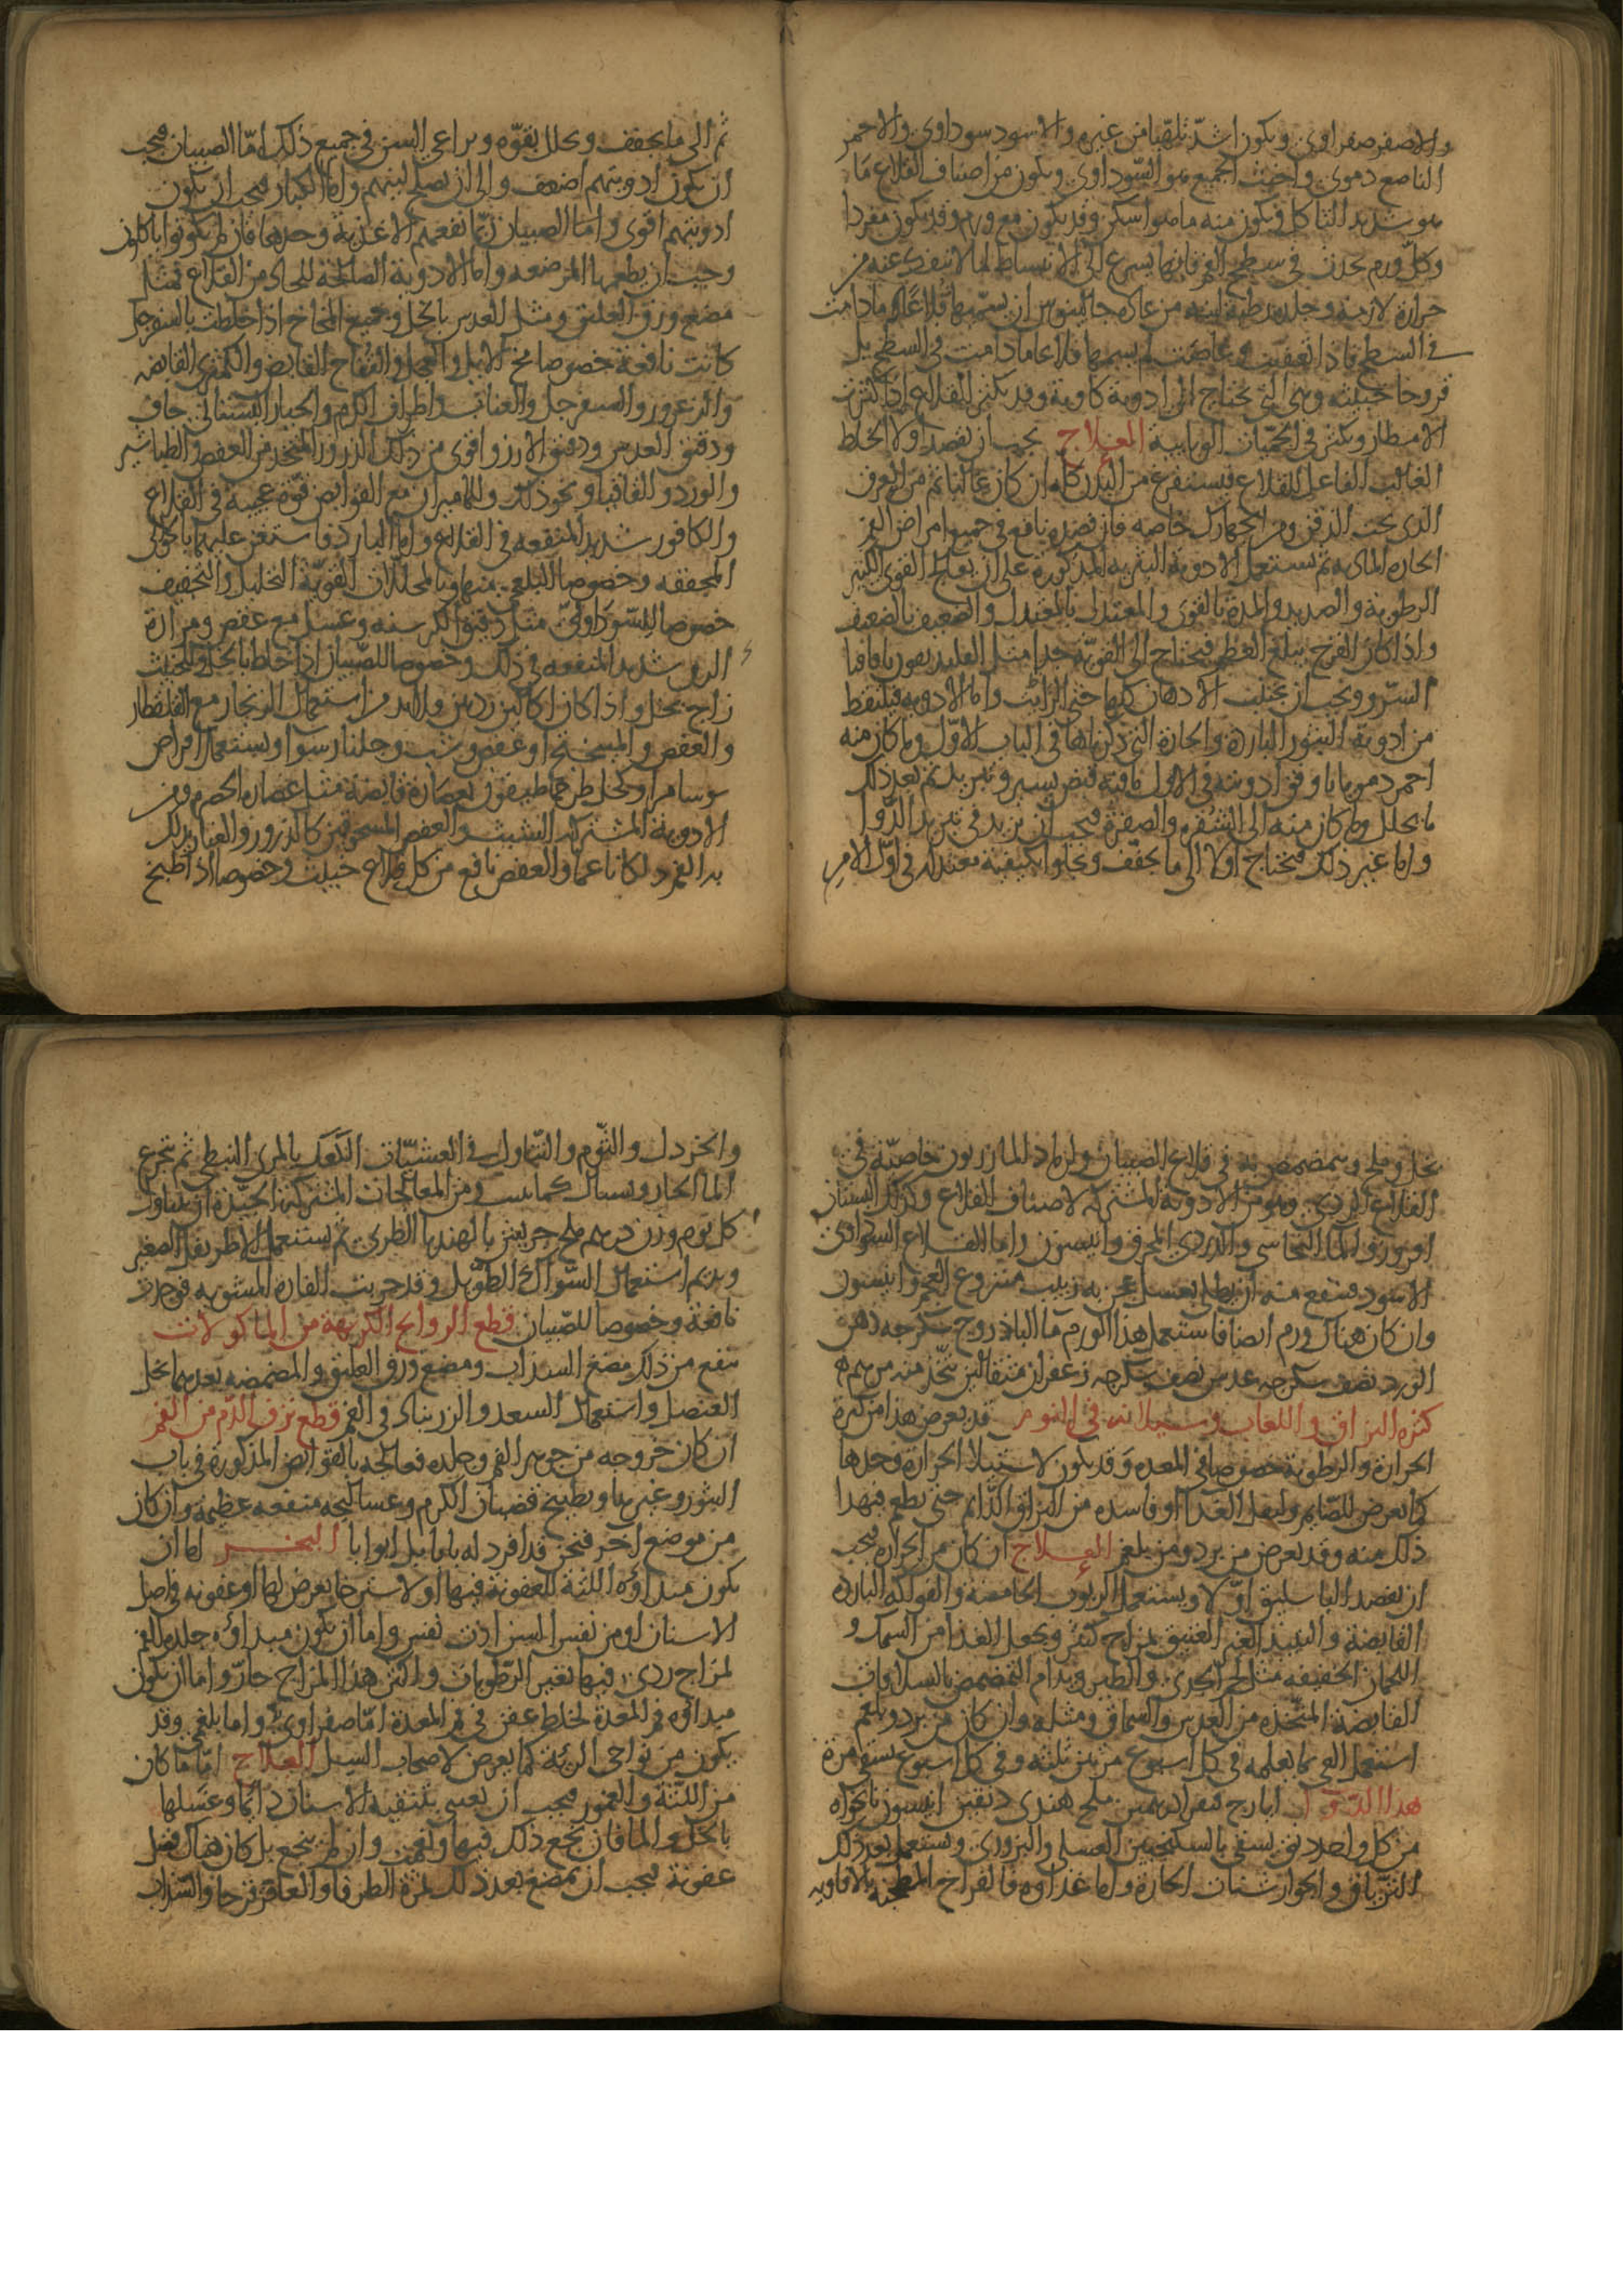 والاصفر صفراوى ويكون اشد تلهبا من غيره والاسود سوداوى والاحمر
الناصع دموى واخبث الجميع هو السوداوى ويكون من اصناف القلاع ما
هو شديد التاكل ويكون منه ما هو اسكن وقد يكون مع ورم وقد يكون مفردا
وكل ورم يحدث فى سطح الفم فانها يسرع الى الانبساط لما لا ينفك عنه من
حرارة لازمة وجلده رطبة لينه من عاده جالينوس ان يسميها قلاعا مادامت
فى السطح فاذا تعفنت وغاصت لم يسمها قلاعا مادامت فى السطح بل
قروحا خبيثه وهى التى تحتاج الى ادوية كاوية وقد يكثر القلاع اذا كثرت
الامطار ويكثر فى الحميات الوبايية العلاج يجب ان يقصد اولا الخلط
الغالب الفاعل للقلاع فيستفرغ من البدن كله ان كان غالبا ثم من العرق
الذى تحت الذقن ومن الجهارك خاصه فان فصده نافع فى جميع امراض الفم
الحاره المادية ثم يستعمل الادوية البثرية المذكورة على ان يعالج القوى الكثير
الرطوبة والصديد والمدة بالقوى والمعتدل بالمعتدل والضعيف بالضعيف
واذا كان القرح يبلغ العظم فيحتاج الى القوية جدا مثل الفلدفيون باقاقيا
السرو ويجب ان يجتنب الادهان كلها حتى الزيت واما الادويه فيلتقط
من ادوية البثور الباردة والحارة التى ذكرناها فى الباب الاول وما كان منه
احمر دمويا باوفق ادويته فى الاول ما فيه قبض يسير وتبريد ثم بعد ذلك
ما يحلل وما كان منه الى الشقره والصفرة فيجب ان يزيد فى تبريد الدوا
واما غير ذلك فيحتاج اولا الى ما يجفف ويجلوا بكيفية معتدله فى اول الامر
ثم الى ما يجفف ويحلل بقوه ويراعى السن فى جميع ذلك اما الصبيان فيجب
ان يكون ادويتهم اضعف والى ان يصلح لبنهم واما الكبار فيجب ان يكون
ادويتهم اقوى واما الصبيان ربما نفعهم الاغذية وحدها فان لم يكونوا ياكلون
وجب ان يطعمها المرضعه واما الادوية الصالحة للحار من القلاع فمثل
مضغ ورق العليق ومثل العدس بالخل وجميع المخاخ اذا خلطت بالسفرجل
كانت نافعة خصوصا مخ الايل والعجل والتفاح القابض والكمثرى القابض
والزعرور والسفرجل والعناب واطراف الكرم والخيار البستانى جاف
ودقيق العدس ودقيق الارز واقوى من ذلك الذرور المتخذ من العفص والطباشير
والورد والقاقيا ونحو ذلك وللماميران مع القوابض قوة عجيبة فى القلاع
والكافور شديد المنفعه فى القلاع واما البارد فاستعن عليها بالجوالى
المجففه وخصوصا البلغمى منها وبالمحللات القوية التحليل والتجفيف
خصوصا السوداوى مثل دقيق الكرسنه وعسل مع عفص ومرارة
الرق شديد المنفعه فى ذلك وخصوصا للصبيان اذا خلط بالخل والخبيث
زاج بخل واذا كان اكالين رديين ولابد من استعمال الزنجار مع القلقطار
والعفص والميبختج او عفص وشب وجلنار سوا ويستعمل اقراص
موسا مر او كحل طرخماطيقون بعصارة قابضة مثل عصاره الحصرم ومن
الادوية المشتركه الشبث والعفص المسحوقين كالذرور والغبار يدلك
به الفم دلكا ناعما والعفص نافع من كل قلاع خبيث وخصوصا اذا طبخ
بخل وملح ويتمضمض به فى قلاع الصبيان ولرماد المازريون خاصية فى
القلاع الردى وهو من الادوية المشتركه لاصناف القلاع وكذلك البستان
افروز والما النحاسى والدردى المحرق وانيسون واما القلاع السوداوى
الاسود فينفع منه ان يطلى بعسل عجن به زبيب منزوع العجم وانيسون
وان كان هناك ورم ايضا فاستعمل هذا الورم ما الباذروج سكرجه دهن
الورد نصف سكرجه عدس نصف سكرجه زعفران مثقالين يتخذ منه مرهم
كثرة البزاق واللعاب وسيلانه فى النوم قد يعرض هذا من كثرة
الحرارة والرطوبة خصوصا فى المعده وقد يكون لاستيلا الحرارة وحدها
كما يعرض للصايم ولمقل الغدا او فاسده من البزاق الدايم حتى يطعم فيهدا
ذلك منه وقد يعرض من برد ومن بلغم العلاج ان كان من الحراره فيجب
ان يفصد الباسليق اولا ويستعمل الربوب الحامضة والفواكه البارده
القابضة والنبيذ الغير العتيق بمزاج كثير ويجعل الغدا من السمك و
اللحمان الخفيفه مثل لحم الجدى والطير ويدام التمضمض بالسلاقات
القابضة المتخذه من العدس والسماق ومثله وان كان من برد وبلغم
استعمل القى بما يعلمه فى كل اسبوع مرتين ثلثه وفى كل اسبوع يسقى مرة
هذا الدوا ايارج فيقرا درهمين ملح هندى دنقين انيسون نانخواه
من كل واحد دانق يسقى بالسكنجبين العسلى والبزورى ويستعمل بعد ذلك
الترياق والجوارشنات الحارة واما غداوه فالفراخ المطجنة بالافاويه
والخردل والثوم والتناول فى العشيات الكعك بالمرى النبطى ثم يتجرع
الما الحار ويستاك كما يسب ومن المعالجات المشتركة الجيدة ان يتناول
كل يوم وزن درهم ملح جريش بالهندبا الطرى ثم يستعمل الاطريفل الصغير
ويديم استعمال السواك الطويل وقد جربت الفارة المشويه فوجدت
نافعة وخصوصا للصبيان قطع الروايح الكريهة من الماكولات
ينفع من ذلك مضغ السذاب ومضغ ورق العليق والمضمضه بعدهما بخل
العنصل واستعمال السعد والزرنباد فى الفم قطع نزف الدم من الفم
ان كان خروجه من جوهر الفم وجلده فعالجه بالقوابض المذكورة فى باب
البثور وغيرها وبطبيخ قضبان الكرم وعساليجه منفعه عظيمه وان كان
من موضع اخر فنحن قد افرد له بابا بل ابوابا البخر اما ان
يكون مبداؤه اللثة للعفونة فيها او لاسترخا يعرض لها او عفونه فى اصل
الاسنان او من نفس السن اذن نفس واما ان يكون مبداؤه جلدة الفم
لمزاج ردى فيها تغير الرطوبات واكثر هذا المزاج حار واما ان يكون
مبداؤه فم المعدة لخلط عفن فى فم المعدة اما صفراوى واما بلغمى وقد
يكون من نواحى الرئة كما يعرض لاصحاب السل العلاج اما ما كان
من اللثة والعمور فيجب ان يعنى بتنقية الاسنان دايما وغسلها
بالخل والما فان نجع ذلك فيها ونعمت وان لم ينجع بل كان هناك فضل
عفونة فيجب ان يمضغ بعد ذلك ثمرة الطرفا والعاقرقرحا والسذاب